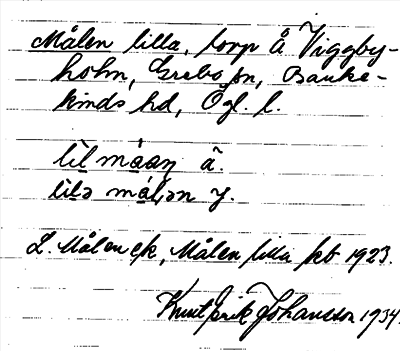 Målen lilla, torp å Viggby-
holm, Grebo sn, Banke-
kinds hd, Ögl. l.
lìl måaṇ ã.
lilə målən y.
L. Målen ek, Målen lilla kb 1923.
Knut Erik Johansson 1934.